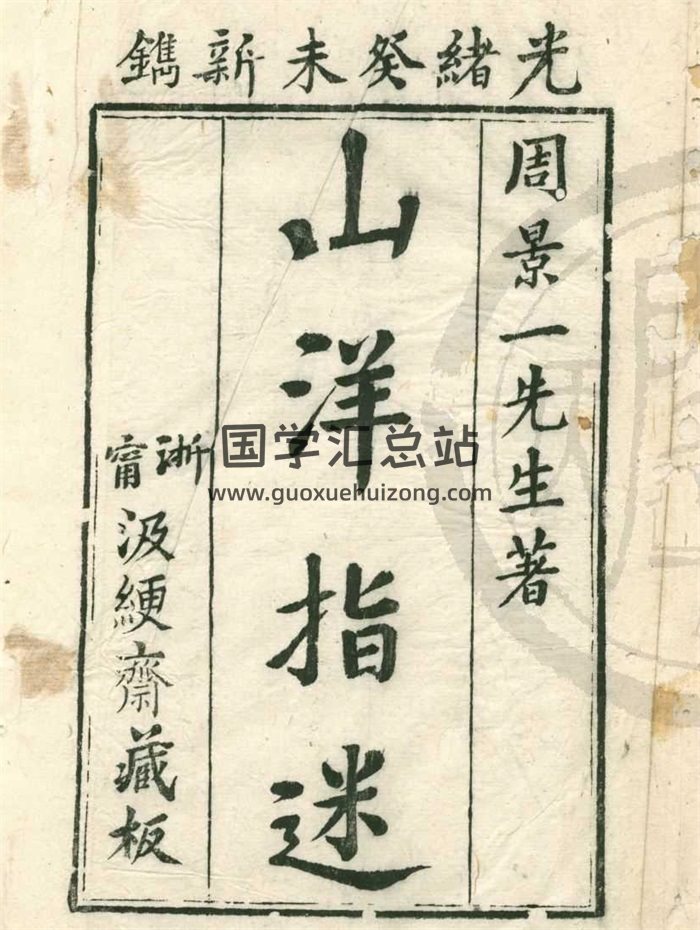 光緒癸未新鐫
周景一先生著
山洋指迷
浙甯
汲綆齋藏板
国学汇总站
www.guoxuehuizong.com